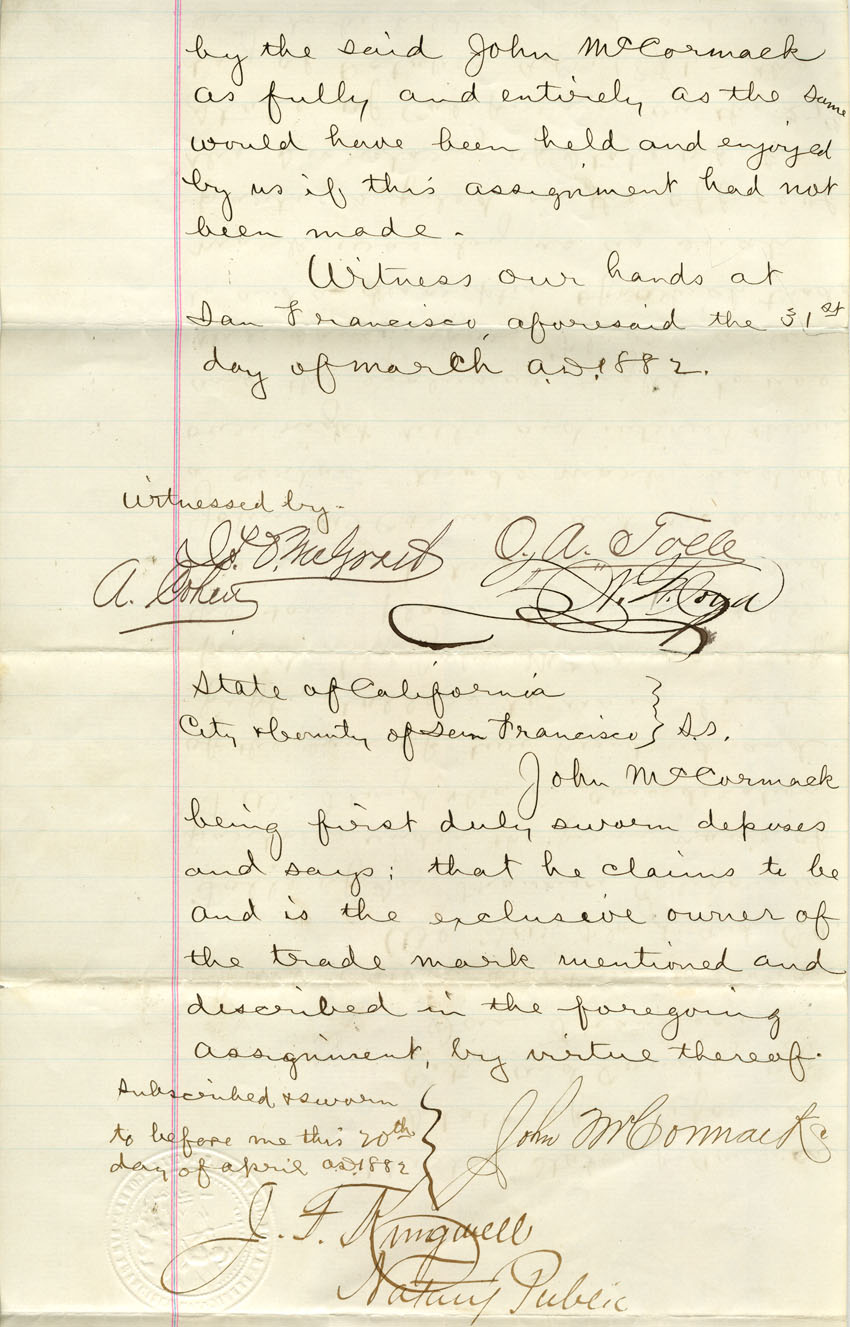 by the said John McCormack
as fully and entirely as the same
would have been held and enjoyed
by us if this assignment had not
been made.
Witness our hands at
San Francisco, aforesaid the 31st
day of march A.D. 1882.
Witnessed by.
A. Cohen
O. A. Tolle
State of California
City & County of San Francisco } S.S.
John McCormack
being first duly sworn deposes
and says; that he claims to be
and is the exclusive owner of
the trade mark mentioned and
described in the foregoing
assignment, by virtue thereof.
Subscribed & sworn
to before me this 20th
day of April A.D. 1882
John McCormack
J. F. Kingwell
Notary Public